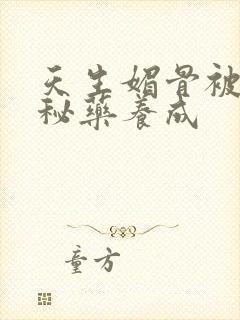 天生媚骨被
秘藥養成
童方